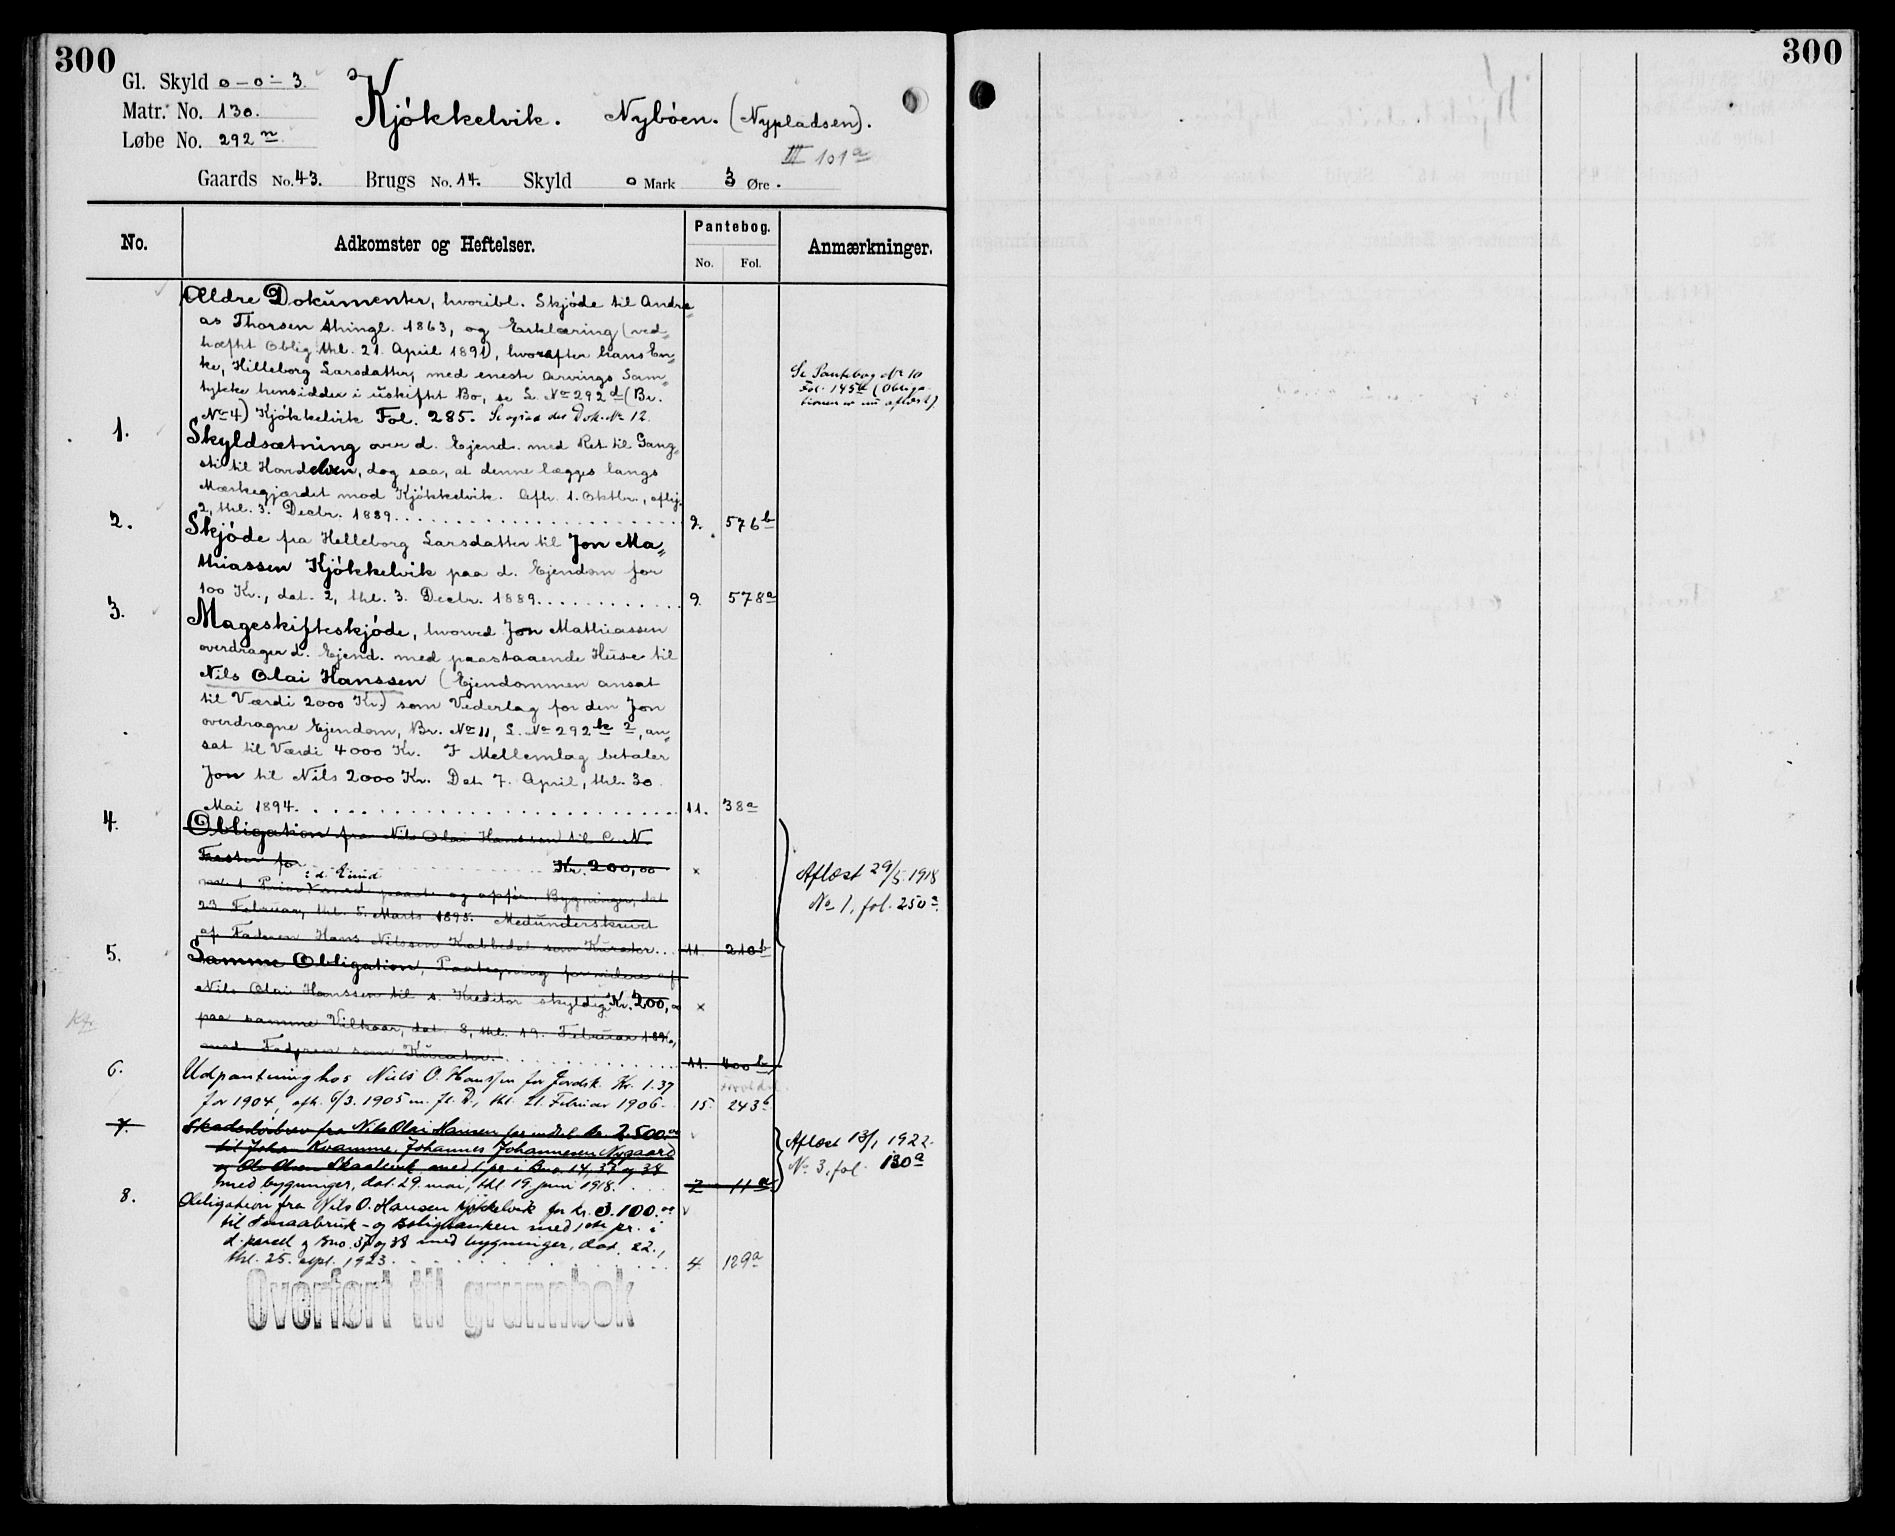 300
300
Gl. Skyld 0 – 0 – 3.
Matr. No. 130.
Løbe No. 292 n
Kjøkkelvik. Nybøen. (Nypladsen).
III 101 a
Gaards No. 43. Brugs No. 14. Skyld 0 Mark 3 Øre.
No.
Adkomster og Heftelser.
Pantebog.
No. Fol.
Anmærkninger.
Ældre Dokumenter, hvoribl. Skjøde til Andre-
as Thorsen thingl. 1863, og Erklæring (ved-
hæftet Oblig. thl. 21. April 1891), hvorefter hans En-
ke, Hilleborg Larsdatter, med eneste Arvings Sam-
tykke hensidder i uskiftet Bo, se L. No 292 d (Br.
No 4) Kjøkkelvik Fol. 285. Se ogsaa der Dok. No 12.
Se Pantebog No 10
Fol. 145 b (Obliga-
tionen er nu aflæst)
1. Skyldsætning over d. Ejend. med Ret til Gang-
sti til Hovdelven, dog saa, at denne lægges langs
Mærkegjærdet mod Kjøkkelvik. Afh. 1. Oktbr., aflhj.
2, thl. 3. Decbr. 1889. 9. 576 b
2. Skjøde fra Helleborg Larsdatter til Jon Ma-
thiassen Kjøkkelvik paa d. Ejendom for
100 Kr., dat. 2, thl. 3. Decbr. 1889. 9. 578 a
3. Mageskifteskjøde, hvorved Jon Mathiassen
overdrager d. Ejend. med paastaaende Huse til
Nils Olai Hanssen (Ejendommen ansat
til Værdi 2000 Kr.) som Vederlag for den Jon
overdragne Ejendom, Br. No 11, L. No 292 k 2, an-
sat til Værdi 4000 Kr. I Mellemlag betaler
Jon til Nils 2000 Kr. Dat. 7. April, thl. 30.
Mai 1894. 11. 38 a
4. Obligation fra Nils Olai Hanssen til C. N.
for Kr. 200,00 ×
: d. Eiend.
mod 1 Prior. med paast. og opför. Bygninger, dat.
23. Februar, thl. 5. Marts 1895. Medunderskrevet
af Faderen Hans Nilssen som Kurator. 11 210 b
Aflæst 29/5 1918
No 1, fol. 250 a.
5. Samme Obligation, Paategning for videre af
Nils Olai Hanssen til s. Kreditor skyldig Kr. 200,00 ×
paa samme Vilkaar, dat. 8, thl. 19. Februar 1896,
med Faderen som Kurator. 11. 400 b
6. Udpantning hos Niels O. Hanssen for Jordsk. Kr. 1.37
for 1904, afh. 6/3. 1905 m. fl. D., thl. 21. Februar 1906. 15. 243 b
7. Skadesløsbrev fra Nils Olai Hansen for indtil kr. 2.500.00
til Johan Kvamme, Johannes Johannesen Nygaard
og Ole Olsen Skaalevik med 1 pr. i Bno. 14, 37 og 38
med bygninger, dat. 29. mai, thl. 19 juni 1918. 2 11 a
Aflæst 13/1 1922.
No 3, fol. 130 a
8. Obligation fra Nils O. Hansen Kjøkkelvik for kr. 3.100.00
til Smaabruk- og Boligbanken med 1ste pr. i
d. parcel og Bno. 37 og 38 med bygninger, dat. 22.,
thl. 25. sept. 1923. 4 129 a
Overført til grunnbok